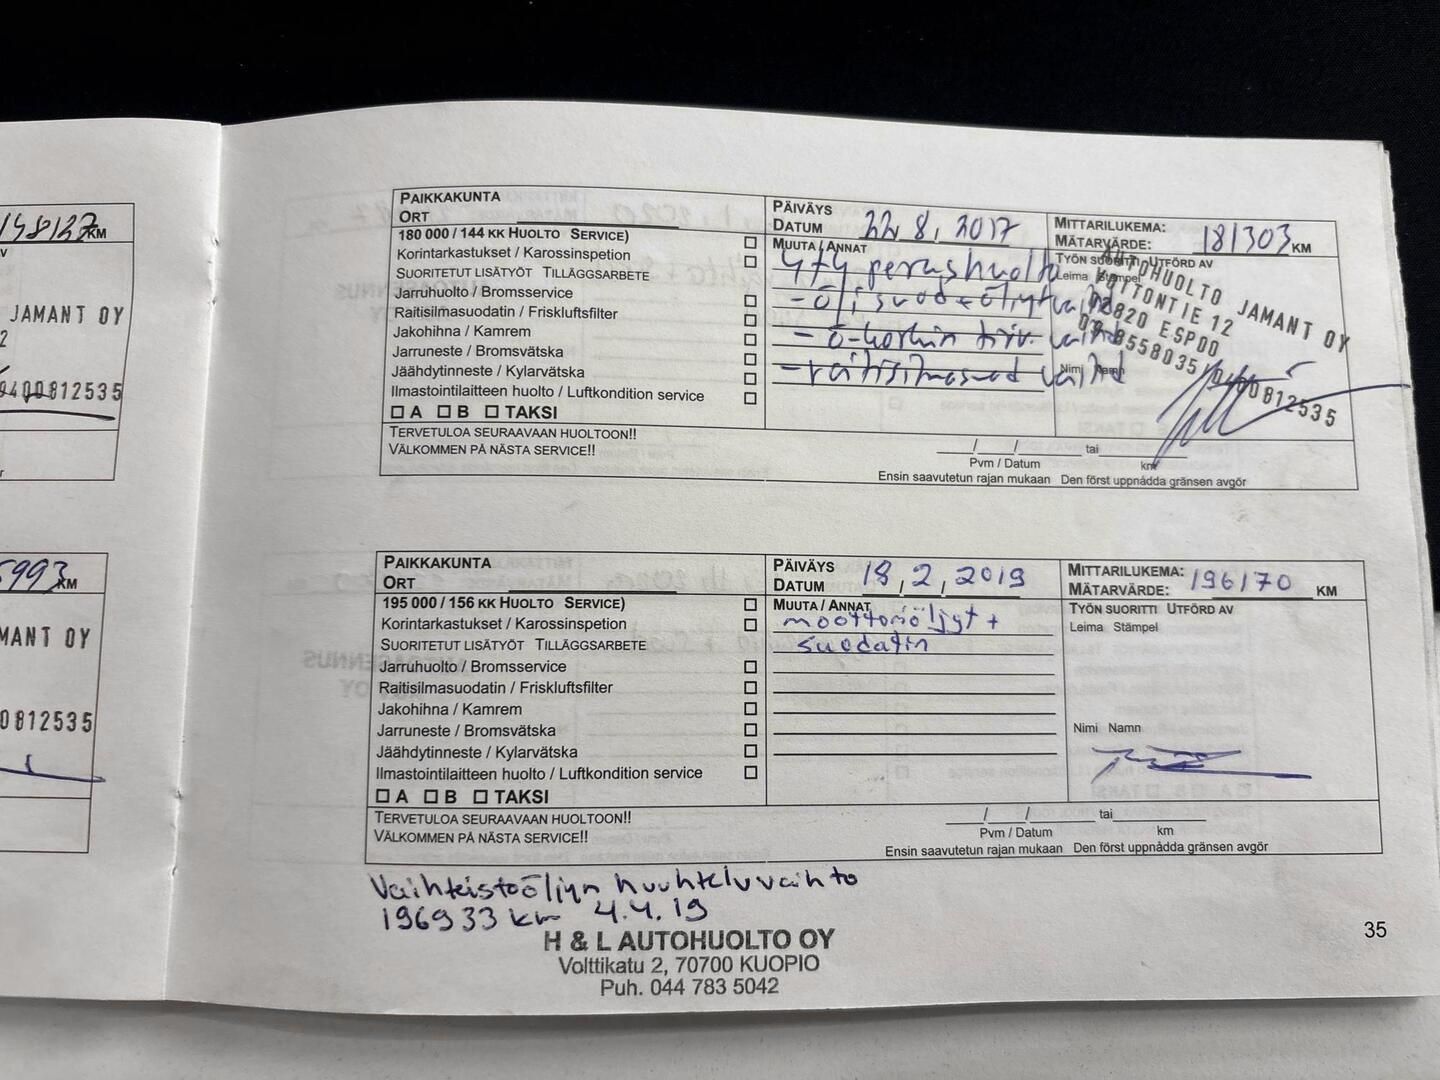 148127 KM
JAMANT OY
2
0400812535
5993 KM
MANT OY
0812535
PAIKKAKUNTA
ORT
PÄIVÄYS
DATUM 22.8.2017
MITTARILUKEMA:
MÄTARVÄRDE: 181303 KM
180 000 / 144 KK HUOLTO SERVICE)
Korintarkastukset / Karossinspetion
SUORITETUT LISÄTYÖT TILLÄGGSARBETE
Jarruhuolto / Bromsservice
Raitisilmasuodatin / Friskluftsfilter
Jakohihna / Kamrem
Jarruneste / Bromsvätska
Jäähdytinneste / Kylarvätska
Ilmastointilaitteen huolto / Luftkondition service
A B TAKSI
MUUTA / ANNAT
y+y perushuolto
- öljsuod + öljyt vaihd
- ö-korkin tiiv. vaihd
- raitisilmasuod vaihd
TYÖN SUORITTI UTFÖRD AV
Leima Stämpel
AUTOHUOLTO JAMANT OY
KUTTONTIE 12
02820 ESPOO
09 8558035, 0400812535
Nimi Namn
TERVETULOA SEURAAVAAN HUOLTOON!!
VÄLKOMMEN PÅ NÄSTA SERVICE!!
/ / tai
Pvm / Datum km
Ensin saavutetun rajan mukaan Den först uppnådda gränsen avgör
PAIKKAKUNTA
ORT
PÄIVÄYS
DATUM 18.2.2019
MITTARILUKEMA:
MÄTARVÄRDE: 196170 KM
195 000 / 156 KK HUOLTO SERVICE)
Korintarkastukset / Karossinspetion
SUORITETUT LISÄTYÖT TILLÄGGSARBETE
Jarruhuolto / Bromsservice
Raitisilmasuodatin / Friskluftsfilter
Jakohihna / Kamrem
Jarruneste / Bromsvätska
Jäähdytinneste / Kylarvätska
Ilmastointilaitteen huolto / Luftkondition service
A B TAKSI
MUUTA / ANNAT
moottoriöljyt +
suodatin
TYÖN SUORITTI UTFÖRD AV
Leima Stämpel
Nimi Namn
TERVETULOA SEURAAVAAN HUOLTOON!!
VÄLKOMMEN PÅ NÄSTA SERVICE!!
/ / tai
Pvm / Datum km
Ensin saavutetun rajan mukaan Den först uppnådda gränsen avgör
Vaihteistoöljyn huuhteluvaihto
196933 km 4.4.19
H & L AUTOHUOLTO OY
Volttikatu 2, 70700 KUOPIO
Puh. 044 783 5042
35